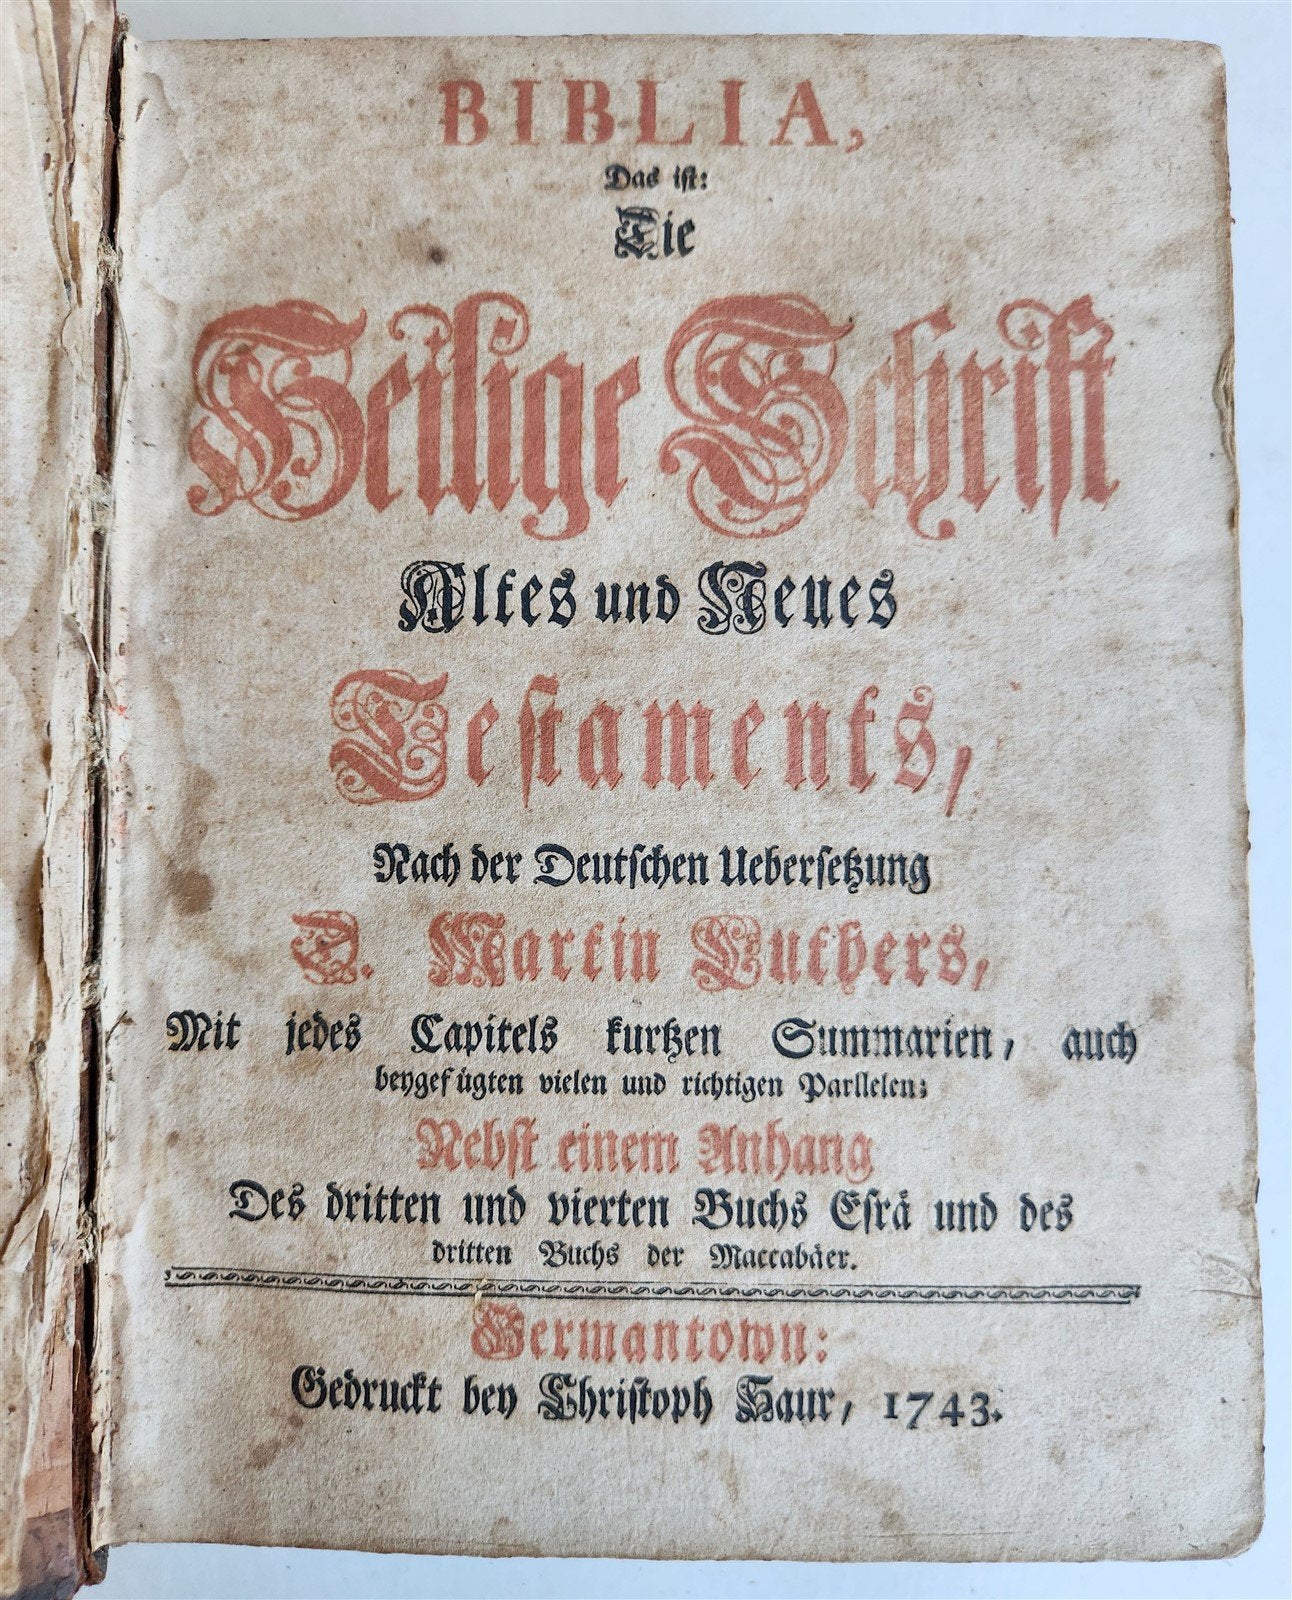 BIBLIA,
Das ist:
Die
Heilige Schrift
Altes und Neues
Testaments,
Nach der Deutschen Uebersetzung
D. Martin Luthers,
Mit jedes Capitels kurtzen Summarien, auch
beygefügten vielen und richtigen Parllelen;
Nebst einem Anhang
Des dritten und vierten Buchs Esrä und des
dritten Buchs der Maccabäer.
Germantown:
Gedruckt bey Christoph Saur, 1743.